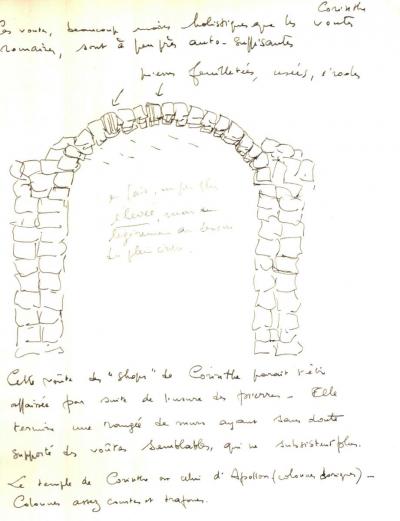 Corinthe
Ces voutes, beaucoup moins holistiques que les voutes
romaines, sont à peu près auto-suffisantes
pierres feuilletées, usées, érodées
en fait, un peu plus
élevée, mais
légèrement au dessous
du plein cintre.
Cette voûte des "Shops" de Corinthe paraît s'être
affaissée par suite de l'usure des pierres - Elle
termine une rangée de murs ayant sans doute
supporté des voûtes semblables, qui ne subsistent plus.
Le temple de Corinthe est celui d'Apollon (colonnes doriques) -
Colonnes assez courtes et trapues.